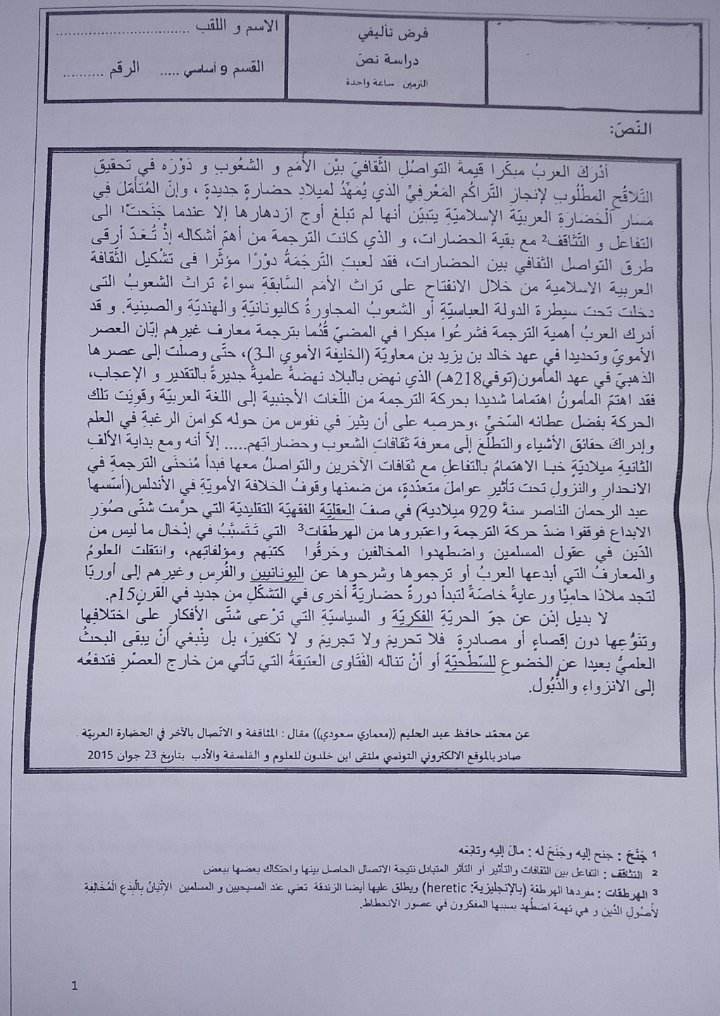 الاسم و اللقب ................................
القسم و أساسي ..... الرقم ..........
فرض تأليفي
دراسة نصّ
التزمين : ساعة واحدة
النّصّ:
أدْركَ العربُ مبكّرا قيمةَ التواصُلِ الثّقافيّ بيْن الأُمَمِ و الشعُوبِ و دَوْرَه في تحقيقِ
التّلاقُحِ المطلُوبِ لإنجازِ التّراكُم المَعْرفِيّ الذي يُمَهِّدُ لميلادِ حضارةٍ جديدةٍ ، وإنّ المُتأمّل في
مَسَارِ الحَضَارةِ العربيّة الإسلاميّةِ يتبيّن أنها لم تبلغ أوج ازدهارها إلا عندما جَنَحتْ¹ الى
التفاعل و التّثاقف² مع بقية الحضارات، و الذي كانت الترجمة من أهمّ أشكاله إذْ تُعَدّ أرقى
طرق التواصل الثقافي بين الحضارات، فقد لعبتِ التّرجَمَةُ دوْرًا مؤثّرا في تشكيل الثّقافة
العربية الاسلامية من خلال الانفتاح على تراث الأمَم السّابقةِ سواءٌ تراث الشعوب التى
دخلت تحت سيطرة الدولة العباسيّةِ أو الشعوبُ المجاورةُ كاليونانيّةِ والهنديّة والصينية. و قد
أدرك العربُ أهمية الترجمة فشرعُوا مبكرا في المضيّ قُدُما بترجمة معارف غيرهم إبّان العصر
الأمويّ وتحديدا في عهد خالد بن يزيد بن معاويّة (الخليفة الأموي الـ3)، حتّى وصلت إلى عصرها
الذهبيّ في عهد المأمون(توفي218هـ) الذي نهض بالبلاد نهضةً علميةً جديرةً بالتقدير و الإعجاب،
فقد اهتمّ المأمونُ اهتماما شديدا بحركة الترجمة من اللّغات الأجنبية إلى اللغة العربيّة وقويَت تلك
الحركة بفضل عطائه السّخيّ ،وحرصه على أن يثيرَ في نفوس من حوله كوامنَ الرغبةِ في العلم
وإدراكَ حقائق الأشياء والتطلّعَ إلى معرفة ثقافاتِ الشعوب وحضاراتهم..... إلاّ أنه ومع بداية الألفِ
الثانية ميلاديّةٍ خبا الاهتمامُ بالتفاعلِ مع ثقافات الآخرين والتواصلُ معها فبدأ مُنحنَى الترجمة في
الانحدارِ والنزولِ تحت تأثيرِ عواملَ متعدّدةٍ، من ضمنها وقوفُ الخلافة الأمويّةِ في الأندلس(أسّسها
عبد الرحمان الناصر سنة 929 ميلادية) في صفّ العقليّة الفقهيّة التقليديّة التي حرّمت شتّى صُوَرِ
الابداع فوقفوا ضدّ حركة الترجمة واعتبروها من الهرطقات³ التي تَتَسَبَّبُ في إدْخال ما ليس من
الدّين في عقول المسلمين واضطهدوا المخالفين وحَرقُوا كتبَهم ومؤلفاتِهم، وانتقلت العلومُ
والمعارفُ التي أبدعها العربُ أو ترجموها وشرحوها عن اليونانيين والفُرس وغيرهم إلى أوربّا
لتجد ملاذا حاميًا ورعايةً خاصّةً لتبدأ دورةً حضاريّةً أخرى في التشكّلِ من جديد في القرن15م.
لا بديل إذن عن جوّ الحريّة الفكريّة و السياسيّة التي ترْعى شتّى الأفكار على اختلافِها
وتنوُّعِها دون إقصاءٍ أو مصادرةٍ فلا تحريمَ ولا تجريمَ و لا تكفيرَ، بل ينْبغي أنْ يبقى البحثُ
العلميُّ بعيدا عن الخضوعِ للسّطحيّة أو أنْ تنالَه الفَتَاوى العتيقةُ التي تأتي من خارج العصْرِ فتدفعُه
إلى الانزواءِ والذُّبُول.
عن محمّد حافظ عبد الحليم ((معماري سعودي)) مقال : المثاقفة و الاتّصال بالآخر في الحضارة العربيّة
صادر بالموقع الالكتروني التونسي ملتقى ابن خلدون للعلوم و الفلسفة والأدب بتاريخ 23 جوان 2015
¹ جَنَحَ : جنح إليه وجَنَحَ له : مالَ إليه وتابَعَه
² التثاقف : التفاعل بين الثقافات والتأثير أو التأثر المتبادل نتيجة الاتصال الحاصل بينها واحتكاك بعضها ببعض
³ الهرطقات : مفردها الهرطقة (بالإنجليزية: heretic) ويطلق عليها أيضا الزندقة تعني عند المسيحيين و المسلمين الإتْيَانُ بِالْبِدَعِ الْمُخَالِفَةِ
لأُصُولِ الدِّينِ و هي تهمة اضطُهد بسببها المفكرون في عصور الانحطاط.
1